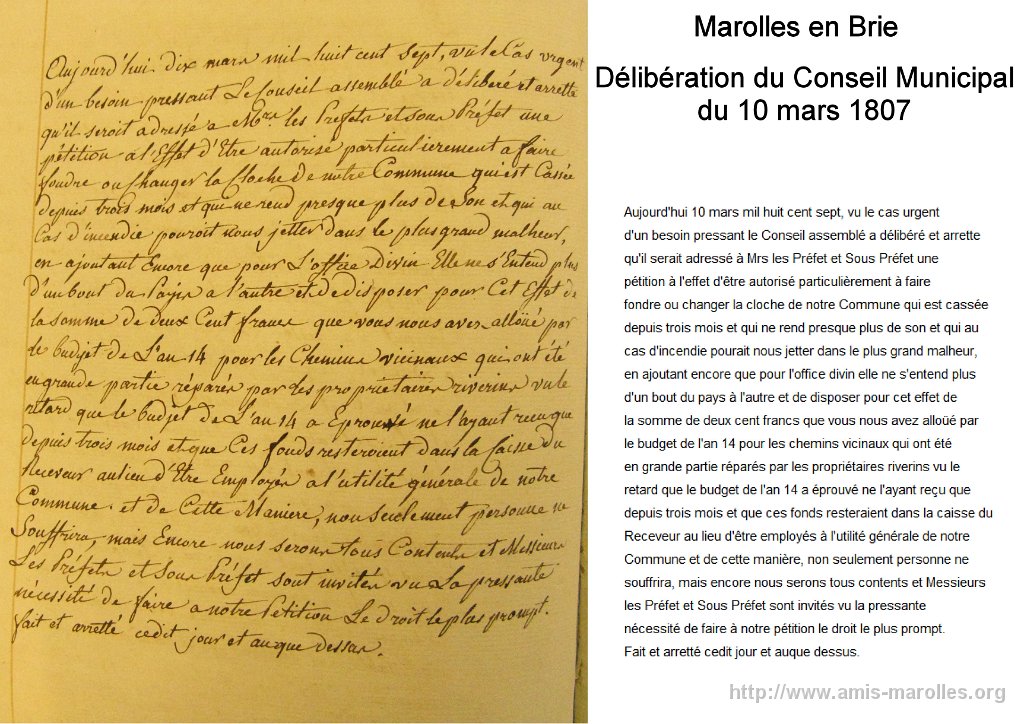 Aujourd'hui dix mars mil huit cent sept, vu le Cas urgent
d'un besoin pressant Le Conseil assemblé a déliberé et arrette
qu'il seroit adressé a Mrs. les Prefets et sous Préfet une
pétition a l'Effet d'Etre autorisé particulierement a faire
foudre ou Changer la Cloche de notre Commune qui est Cassée
depuis trois mois et qui ne rend presque plus de Son et qui au
Cas d'incendie pouroit nous jetter dans le plus grand malheur,
en ajoutant Encore que pour L'office Divin Elle ne s'Entend plus
d'un bout du Pays a l'autre et de disposer pour Cet Effet de
la somme de deux Cent francs que vous nous avez alloüé par
le budjet de L'an 14 pour les Chemins vicinaux qui ont été
en grande partie réparés par les propriétaires riverins vu le
retard que le budjet de L'an 14 a Eprouvé ne l'ayant reçu que
depuis trois mois et que Ces fonds resteroient dans la Caisse du
Receveur au lieu d'Etre Employés a l'utilité générale de notre
Commune et de Cette Maniere, non seulement personne ne
Souffrira, mais Encore nous serons tous Contents et Messieurs
Les Préfets et Sous Préfet sont invités vu La pressante
nécessité de faire a notre Pétition Le droit le plus prompt.
fait et arretté cedit jour et au que dessus.
Marolles en Brie
Délibération du Conseil Municipal
du 10 mars 1807
Aujourd'hui 10 mars mil huit cent sept, vu le cas urgent
d'un besoin pressant le Conseil assemblé a délibéré et arrette
qu'il serait adressé à Mrs les Préfet et Sous Préfet une
pétition à l'effet d'être autorisé particulièrement à faire
fondre ou changer la cloche de notre Commune qui est cassée
depuis trois mois et qui ne rend presque plus de son et qui au
cas d'incendie pourait nous jetter dans le plus grand malheur,
en ajoutant encore que pour l'office divin elle ne s'entend plus
d'un bout du pays à l'autre et de disposer pour cet effet de
la somme de deux cent francs que vous nous avez alloüé par
le budget de l'an 14 pour les chemins vicinaux qui ont été
en grande partie réparés par les propriétaires riverins vu le
retard que le budget de l'an 14 a éprouvé ne l'ayant reçu que
depuis trois mois et que ces fonds resteraient dans la caisse du
Receveur au lieu d'être employés à l'utilité générale de notre
Commune et de cette manière, non seulement personne ne
souffrira, mais encore nous serons tous contents et Messieurs
les Préfet et Sous Préfet sont invités vu la pressante
nécessité de faire à notre pétition le droit le plus prompt.
Fait et arretté cedit jour et auque dessus.
http://www.amis-marolles.org